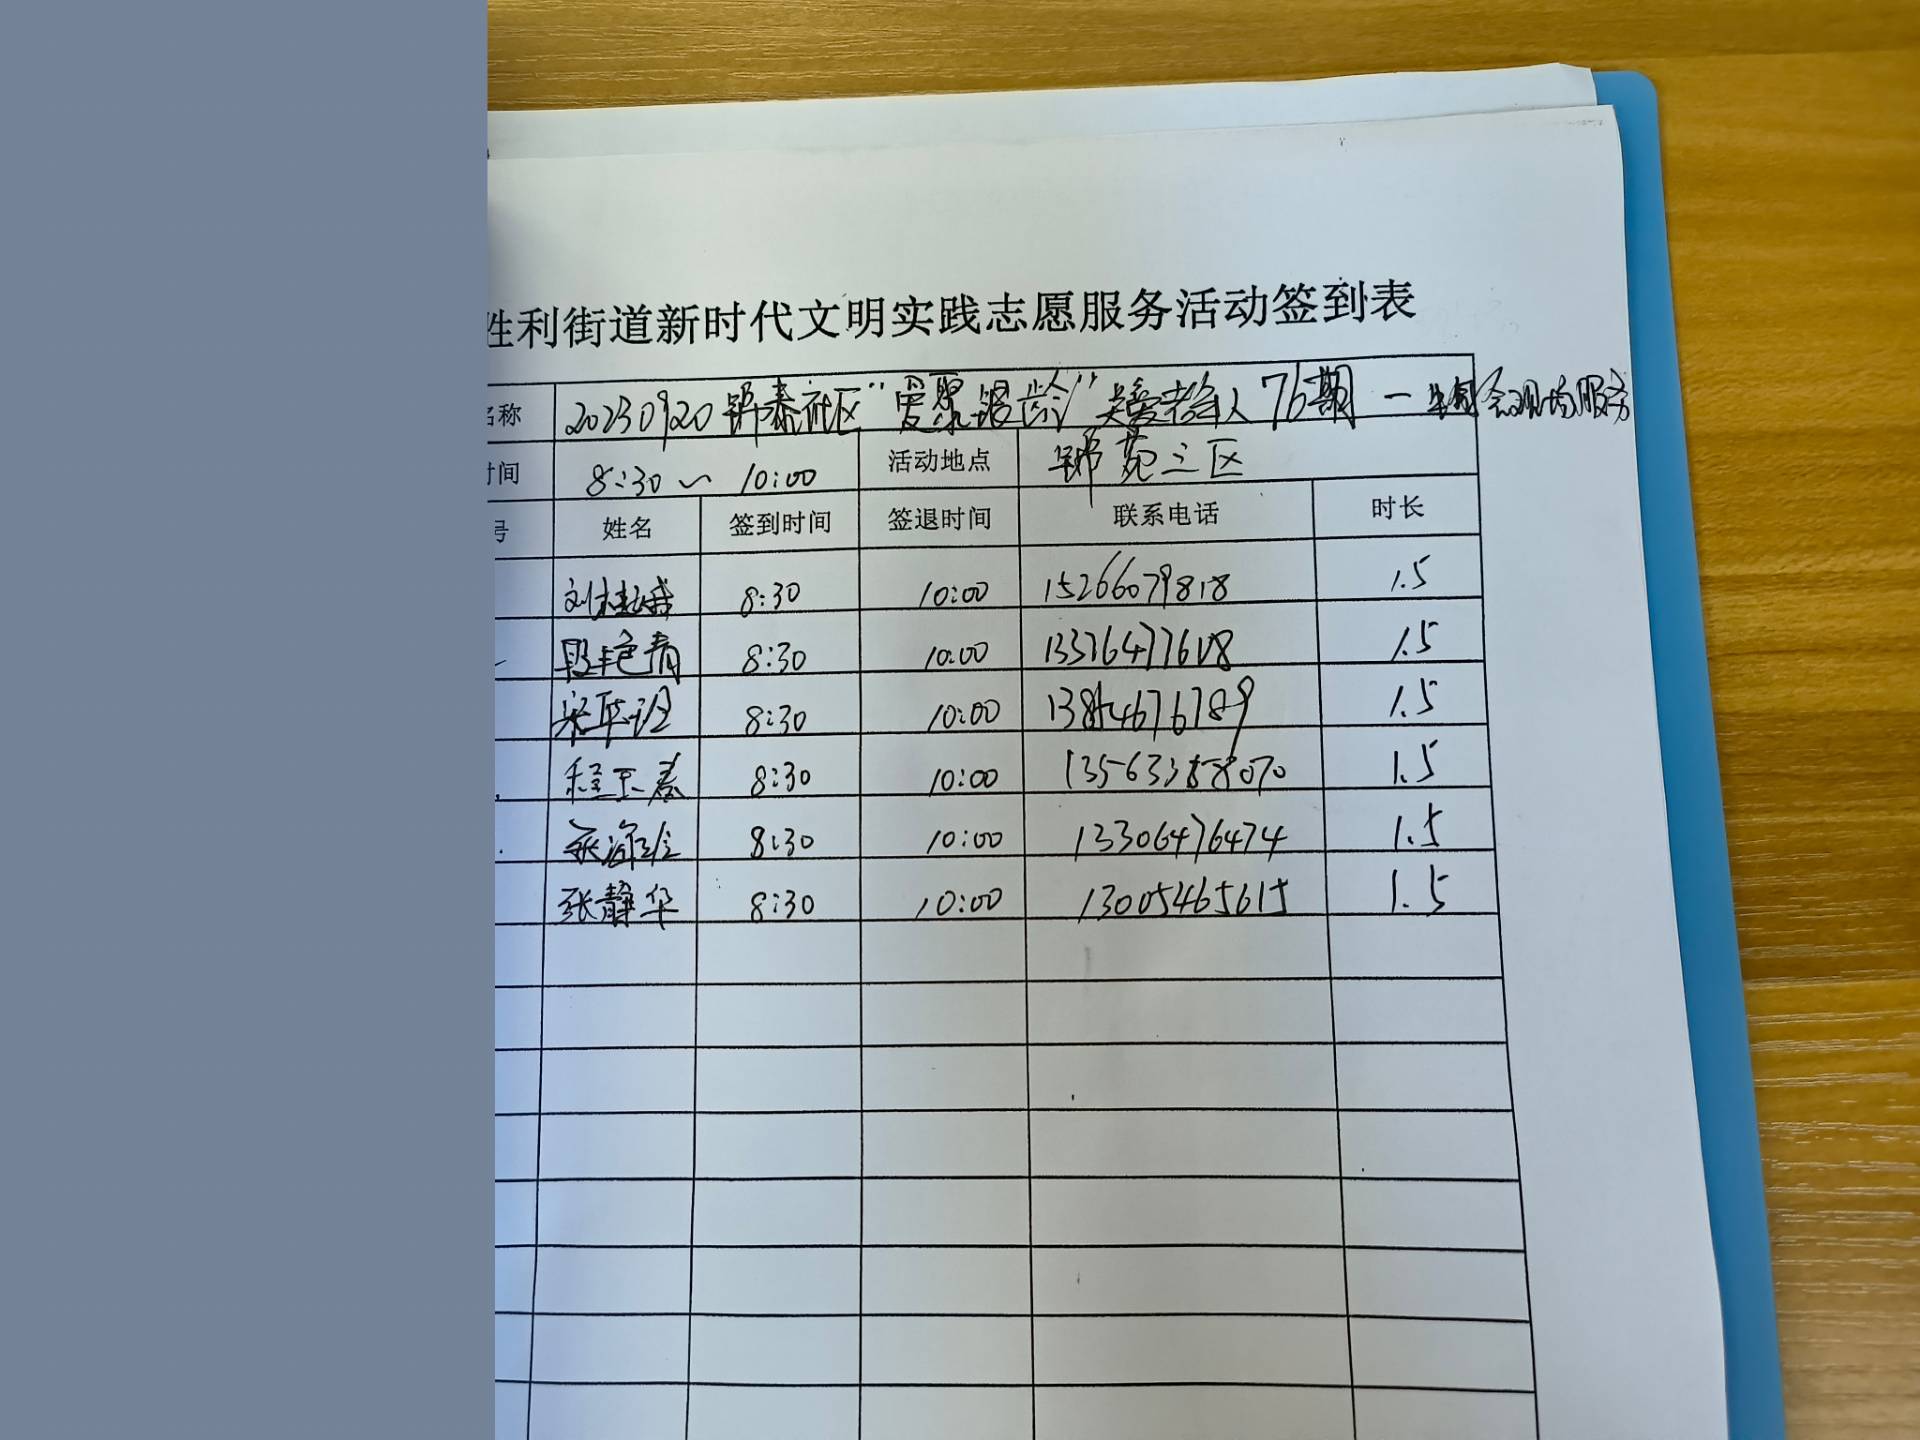 胜利街道新时代文明实践志愿服务活动签到表
名称 20230920锦泰社区"爱聚银龄"关爱老年人76期一 服务
时间 8:30~10:00 活动地点 锦苑三区
号 姓名 签到时间 签退时间 联系电话 时长
刘桂 8:30 10:00 15266079818 1.5
段艳青 8:30 10:00 13376477618 1.5
宋 8:30 10:00 1.5
程玉春 8:30 10:00 1.5
8:30 10:00 13306476474 1.5
张静华 8:30 10:00 13005465615 1.5